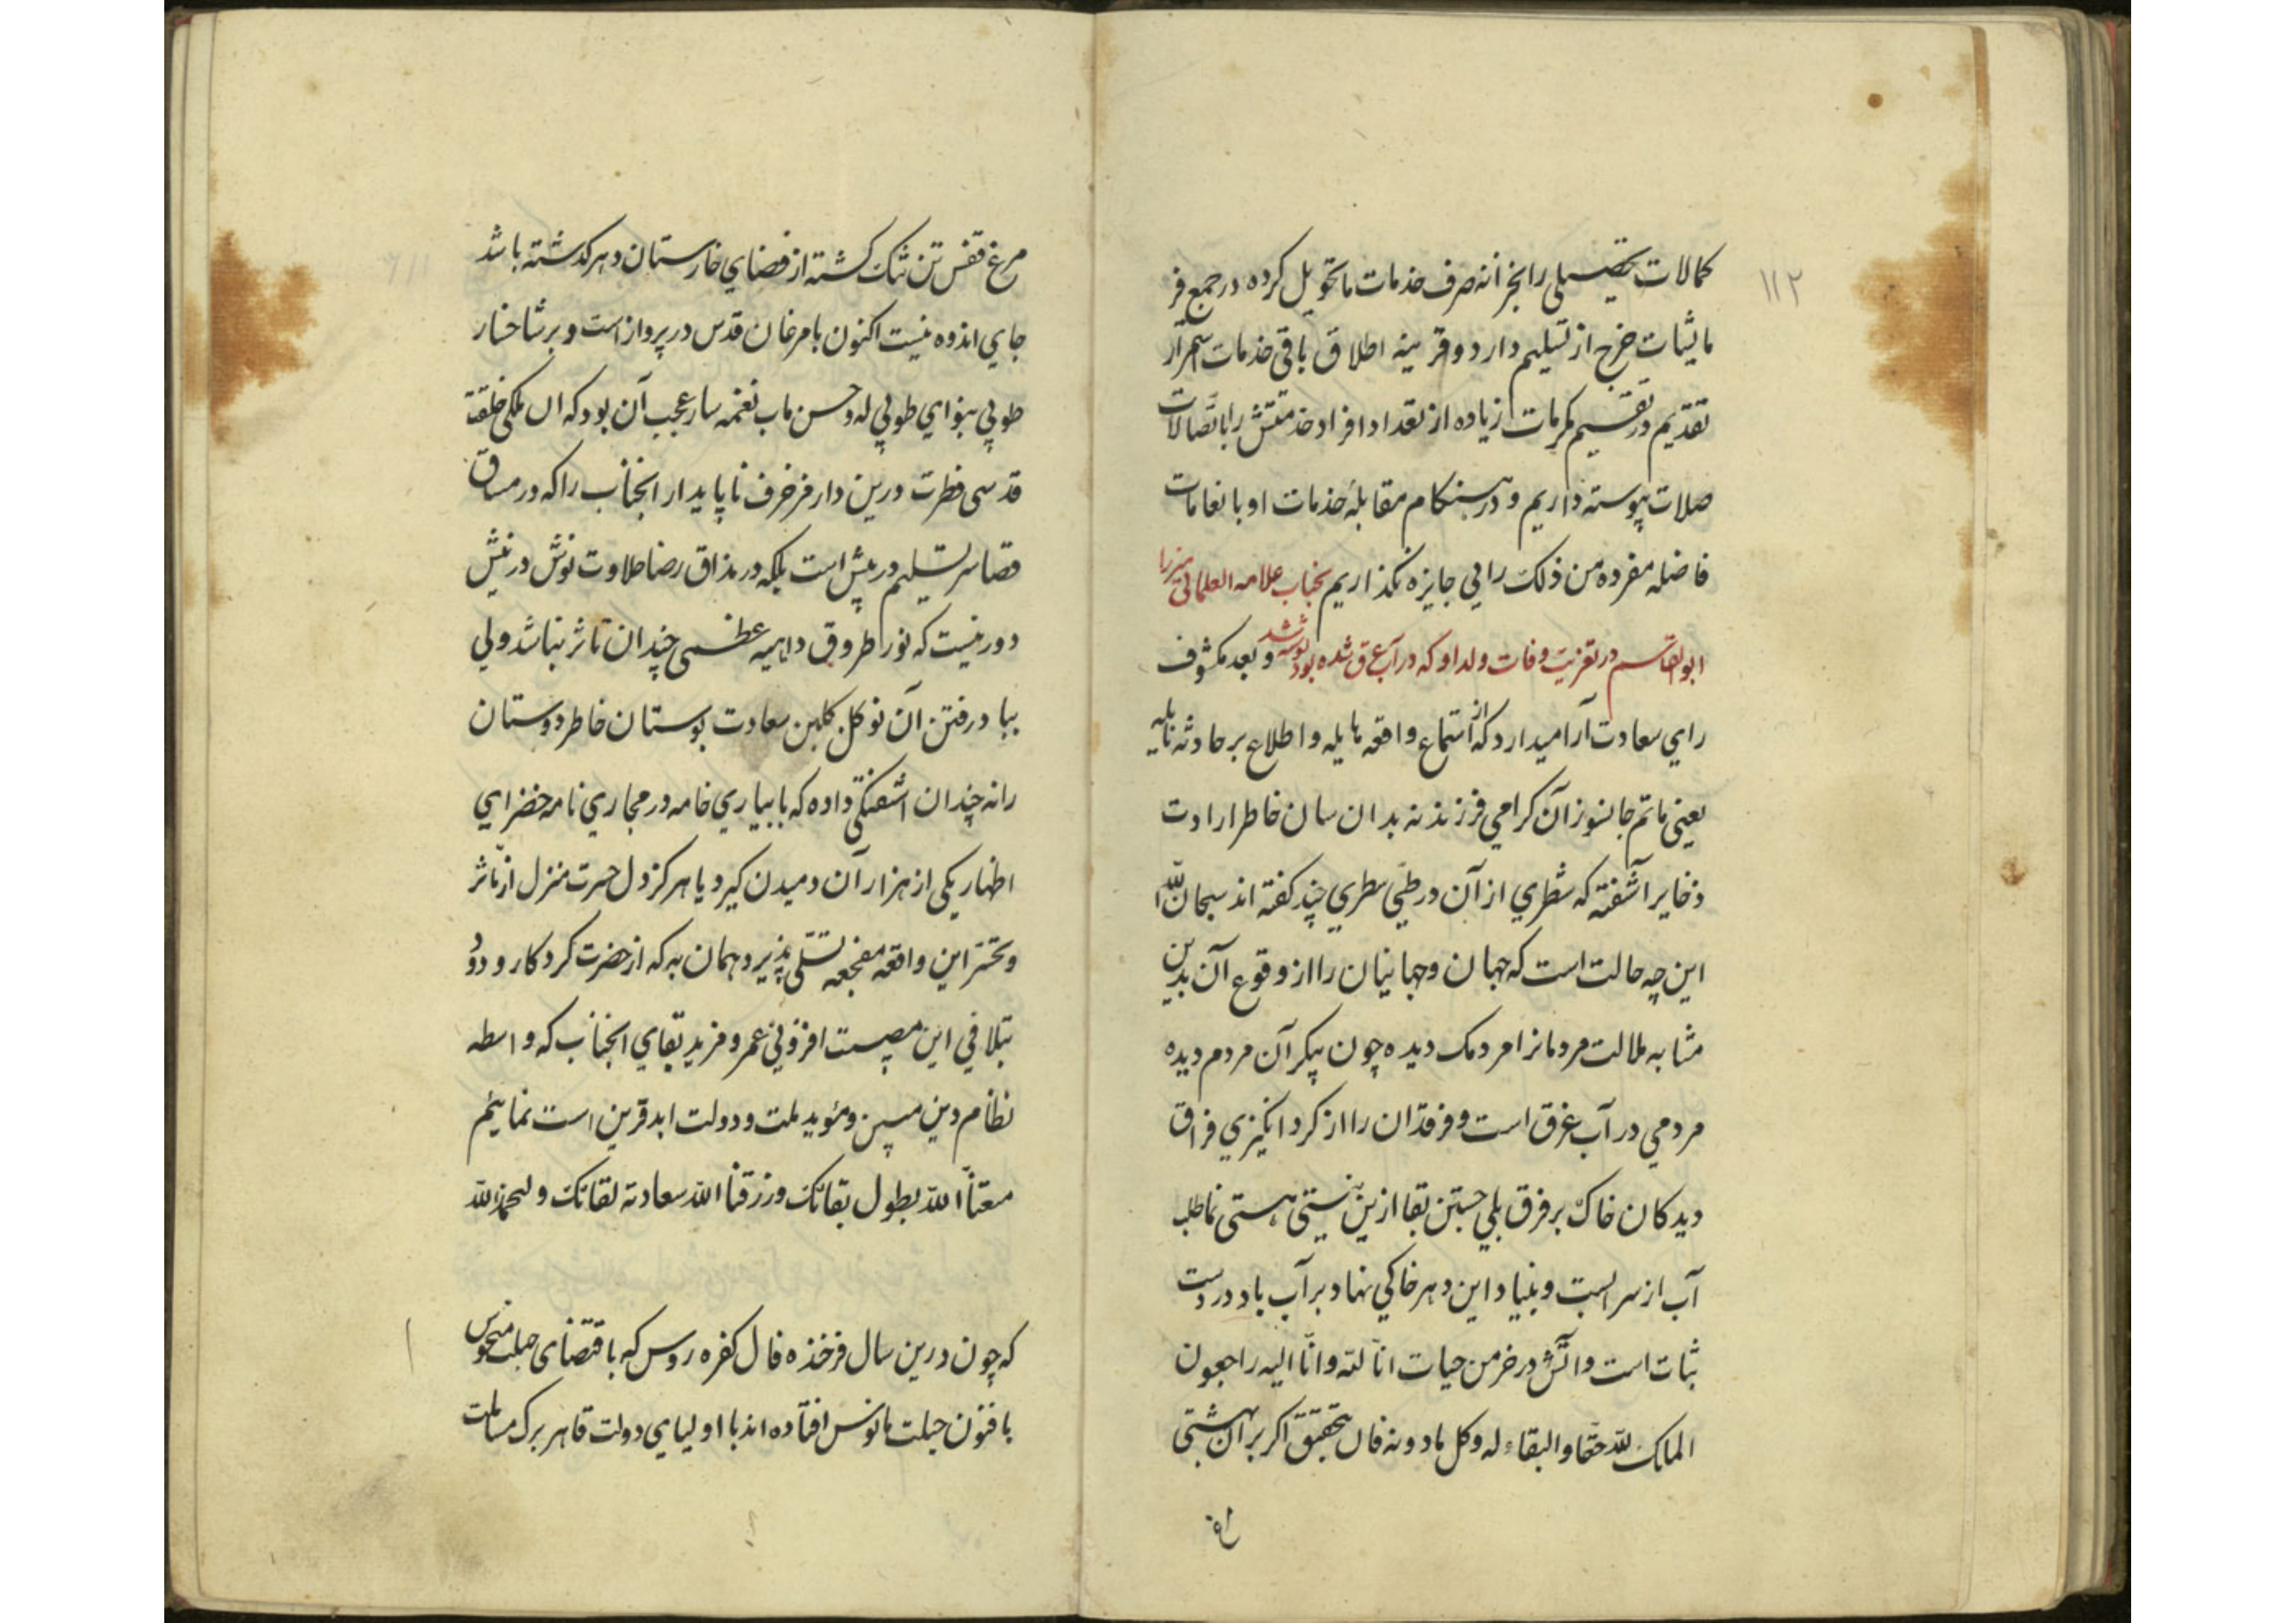 ۱۱۲
کمالات تحصیلی را بخزانه صرف خدمات ما تحویل کرده در جمع فر
مالیات خرج از تسلیم دارد و قرینه اطلاق باقی خدمات استمرار
تقدیم در تقسیم مکرمات زیاده از تعداد افراد خدمتش را باتصالات
صلات پیوسته داریم و در هنکام مقابلهٔ خدمات او بانعامات
فاضله مفرده من ذلک را بی جایزه نکذاریم بجناب علامه العلمائی میرزا
ابوالقاسم در تعزیت وفات ولد او که در آب غرق شده بود نوشته شد و بعد مکشوف
رای سعادت آرا میدارد که از استماع واقعه هایله و اطلاع بر حادثه نازله
یعنی ماتم جانسوز آن کرامی فرزند نه بدان سان خاطر ارادت
ذخایر آشفته که شطری از آن در طی سطری چند کفته اند سبحان الله
این چه حالت است که جهان و جهانیان را از وقوع آن بدین
مشابه ملالت مردمانرا مردمک دیده چون پیکر آن مردم دیده
مردمی در آب غرق است و فرقدان را از کرد انکیزی فراق
دیدکان خاک بر فرق بلی جستن بقا ازین نیستی هستی نما طلب
آب از سرابست و بنیاد این دهر خاکی نهاد بر آب باد در دست
ثبات است و اتش در خرمن حیات انّا لله و انّا الیه راجعون
الملک لله حقا و البقاء له و کل مادونه فان بتحقیق اکر بر آن بهشتی
مرغ قفس تن تنک کشته از فضای خارستان دهر کذشته باشد
جای اندوه نیست اکنون با مرغان قدس در پرواز است و بر شاخسار
طوبی بنوای طوبی له و حسن ماب نغمه سار عجب آن بود که آن ملکی خلقت
قدسی فطرت درین دار مزخرف ناپایدار انجناب را که در مساق
قضا سر تسلیم در پیش است بلکه در مذاق رضا حلاوت نوش در نیش
دور نیست که نور اطروق داهیه عظمی چندان تاثر نباشد ولی
بباد رفتن آن نوکل کلبن سعادت بوستان خاطر دوستان
را نه چندان اشفتکی داده که بابیاری خامه در مجاری نامه خضرای
اظهار یکی از هزار آن دمیدن کیرد یا هرکز دل حسرت منزل از تاثر
و تحسّر این واقعه مفجعه تسلی پذیرد همان به که از حضرت کردکار ودود
تلافی این مصیبت افزونی عمر و مزید بقای انجناب که واسطه
نظام دین مبین و مؤید ملت و دولت ابد قرین است نمائیم
متعنا الله بطول بقائک و رزقنا الله سعادت لقائک و الحمد لله
که چون درین سال فرخنده فال کفره روس که باقتضای جبلت منحوس
با فنون حیلت مانوس افتاده اند با اولیای دولت قاهر برک مسالمت